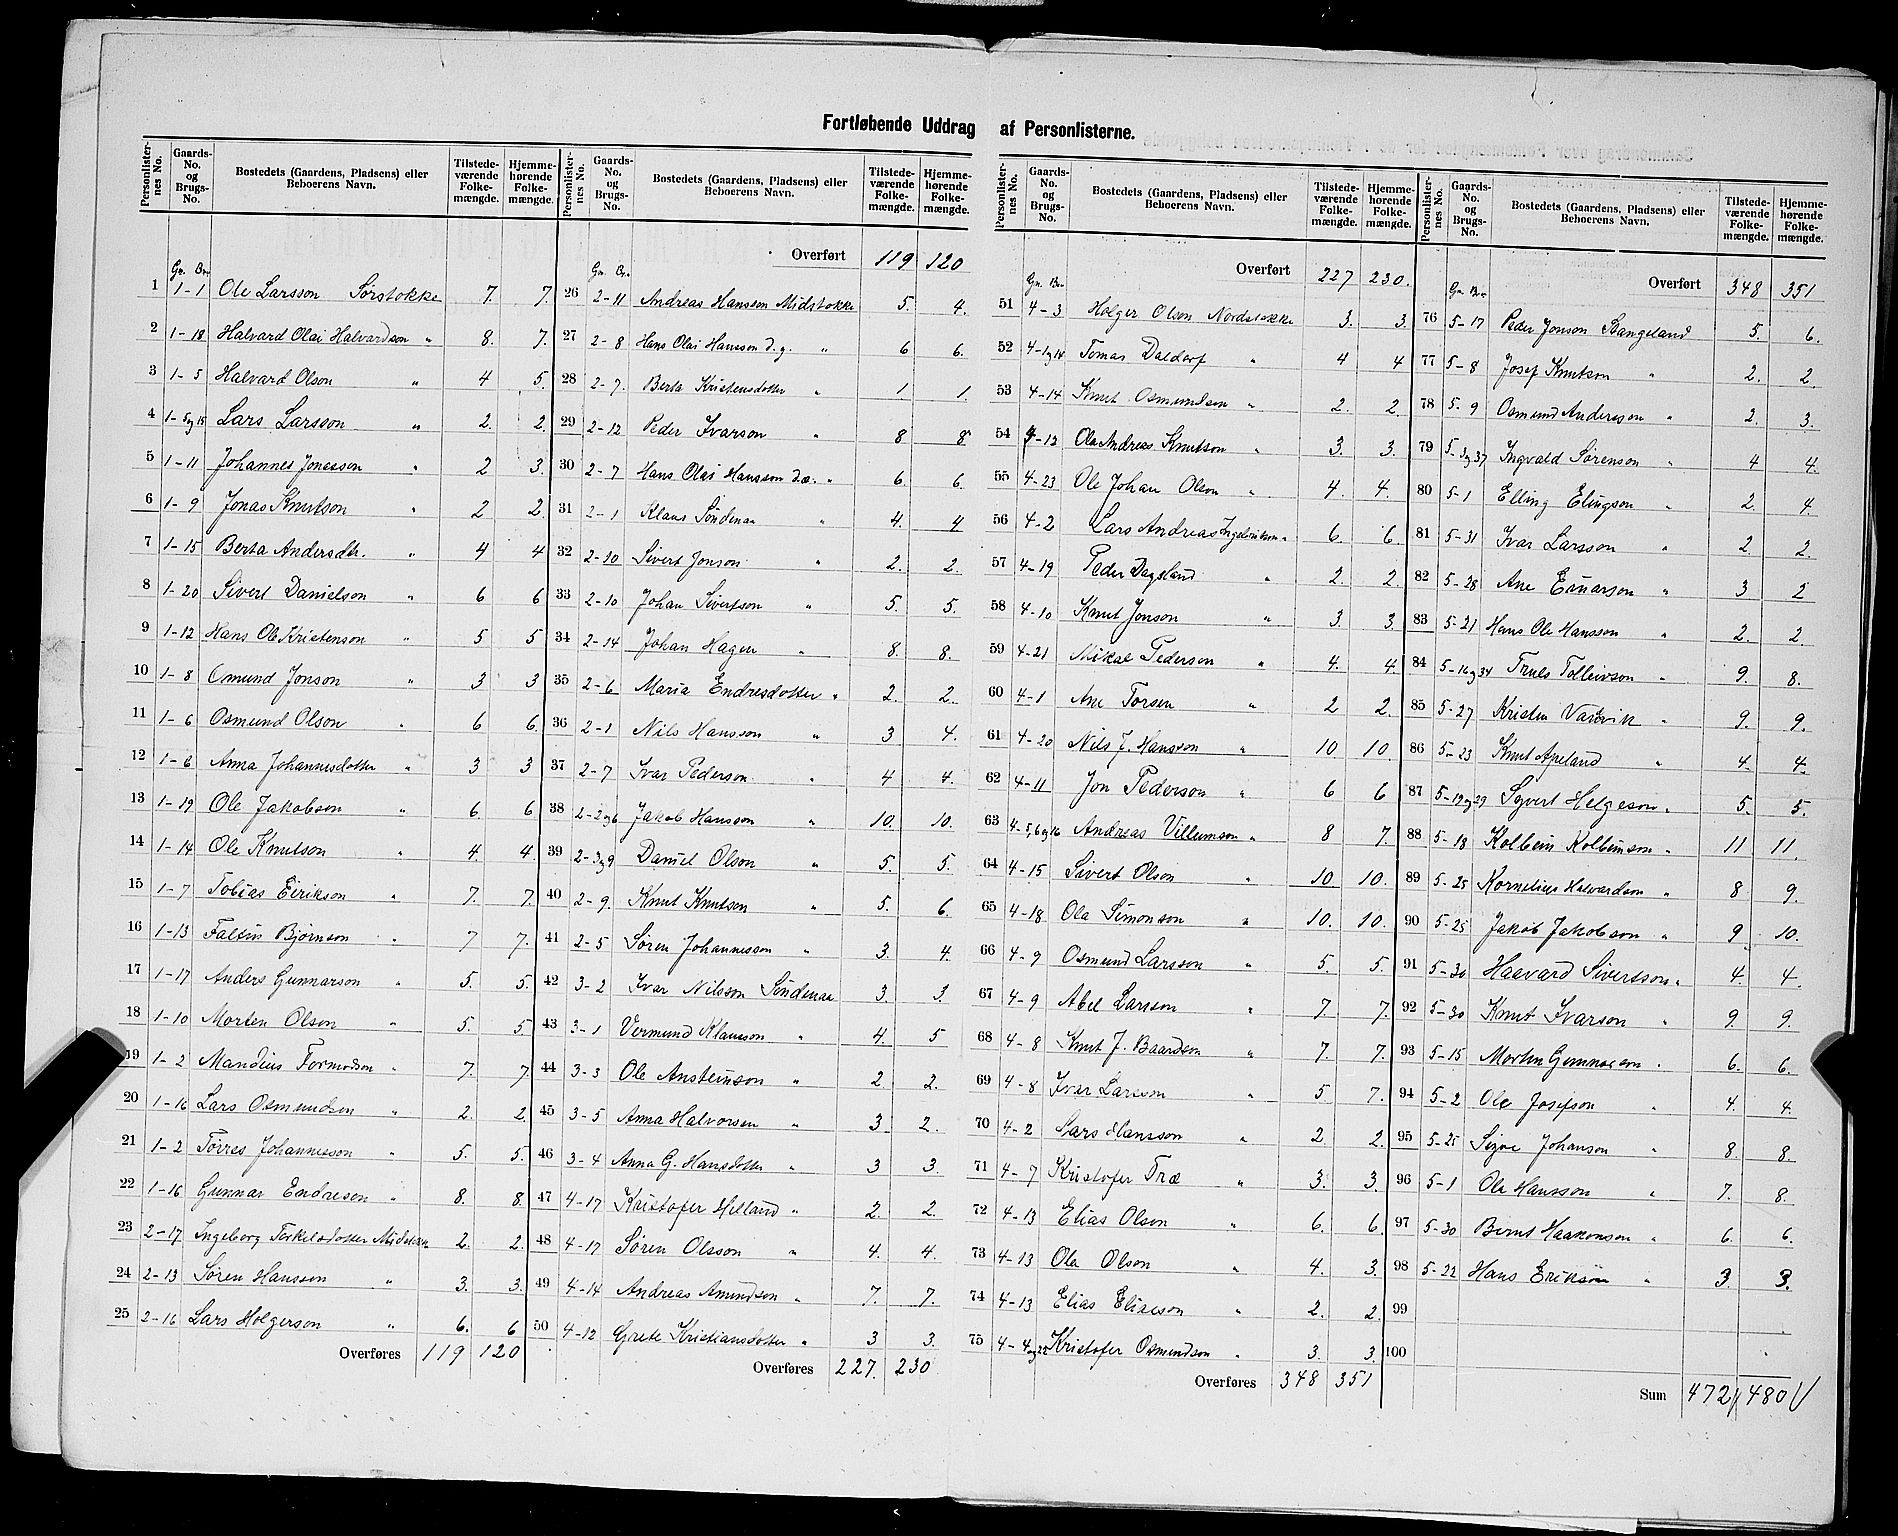 Fortløbende Uddrag af Personlisterne.
Personlister-nes No. Gaards-No. og Brugs-No. Bostedets (Gaardens, Pladsens) eller Beboerens Navn. Tilstede-værende Folke-mængde. Hjemme-hørende Folke-mængde.
Gn. Bn.
1 1-1 Ole Larsson Sørstokke 7. 7.
2 1-18 Halvard Olai Halvardson " 8. 7.
3 1-5 Halvard Olson " 4 5.
4 1-5og15 Lars Larsson " 2. 2.
5 1-11 Johannes Jonasson " 2 3.
6 1-9 Jonas Knutson " 2 2.
7 1-15 Berta Andersdtr. " 4 4
8 1-20 Sivert Danielson " 6 6
9 1-12 Hans Ole Kristenson " 5 5
10 1-8 Omund Jonson " 3 3
11 1-6 Osmund Olson " 6 6.
12 1-6 Anna Johannesdotter " 3 3
13 1-19 Ole Jakobson " 6. 6
14 1-14 Ole Knutson " 4. 4.
15 1-7 Tobias Eirikson " 7. 7.
16 1-13 Faltin Bjørnson " 7 7.
17 1-17 Anders Gunnarson " 5. 5.
18 1-10 Morten Olson " 5. 5
19 1-2 Mandius Tormodson " 7. 7.
20 1-16 Lars Osmundsen " 2. 2.
21 1-2 Torres Johannesson " 5. 5.
22 1-16 Gunnar Endresen " 8. 8.
23 2-17 Ingeborg Terkelsdotter Midstokke 2. 2.
24 2-13 Søren Hansson " 3. 3.
25 2-16 Lars Holgerson " 6. 6
Overføres 119 120
Personlister-nes No. Gaards-No. og Brugs-No. Bostedets (Gaardens, Pladsens) eller Beboerens Navn. Tilstede-værende Folke-mængde. Hjemme-hørende Folke-mængde.
Overført 119 120
Gn. Bn.
26 2-11 Andreas Hansson Midstokke 5. 4.
27 2-8 Hans Olai Hansson d.y. " 6 6.
28 2-7. Berta Kristensdotter " 1 1.
29 2-12 Peder Ivarson " 8 8
30 2-7 Hans Olai Hansson d.æ. " 6. 6.
31 2-1 Klaus Søndenaa " 4. 4
32 2-10 Sivert Jonson " 2. 2.
33 2-10 Johan Sivertson " 5. 5.
34 2-14 Johan Hagen " 8. 8.
35 2-6 Maria Endresdotter " 2. 2.
36 2-1 Nils Hansson " 3 4.
37 2-7 Ivar Pederson " 4 4.
38 2-2og6 Jakob Hansson " 10. 10.
39 2-3og9 Daniel Olson " 5. 5.
40 2-9. Knut Knutsen " 5. 6.
41 2-5 Søren Johannesson " 3. 4.
42 3-2 Ivar Nilsson Søndenaa 3. 3.
43 3-1 Vermund Klausson " 4. 5
44 3-3 Ole Ansteinson " 2. 2.
45 3-5 Anna Halvorsen " 3 2.
46 3-4 Anna G. Hansdotter " 3 3.
47 4-17 Kristofer Helland " 2. 2.
48 4-17 Søren Olsson " 4. 4.
49 4-14 Andreas Amundsen " 7. 7.
50 4-12 Grete Kristiansdotter " 3 3.
Overføres 227. 230
Personlister-nes No. Gaards-No. og Brugs-No. Bostedets (Gaardens, Pladsens) eller Beboerens Navn. Tilstede-værende Folke-mængde. Hjemme-hørende Folke-mængde.
Overført 227 230.
Gn. Bn.
51 4-3 Holger Olson Nordstokke 3. 3.
52 4-1og14 Tomas Daldorf " 4 4
53 4-14 Knut Osmundsen " 2. 2.
54 4-12 Ola Andreas Knutson " 3. 3.
55 4-23 Ole Johan Olson " 4. 4.
56 4-2 Lars Andreas " 6. 6.
57 4-19 Peder Dagsland " 2. 2.
58 4-10 Knut Jonson " 3. 3.
59 4-21 Mikal Pederson " 4. 4.
60 4-1 Ane Torsen " 2 2.
61 4-20 Nils J. Hansson " 10 10.
62 4-11 Jon Pederson " 6 6
63 4-5,6og16 Andreas Villumson " 8 7.
64 4-15 Sivert Olson " 10 10.
65 4-18 Ola Simonson " 10. 10.
66 4-9 Osmund Larsson " 5. 5.
67 4-9 Abel Larsson " 7 7.
68 4-8 Knut J. Baardson " 7. 7.
69 4-8 Ivar Larsson " 5 7.
70 4-2 Lars Hansson " 2 2.
71 4-7 Kristofer Træ " 3. 3.
72 4-13 Elias Olson " 6. 6.
73 4-13 Ola Olson " 4. 3.
74 4-13 Elias Eliasson " 2. 2.
75 4-4og22 Kristofer Osmundson " 3. 3.
Overføres 348 351
Personlister-nes No. Gaards-No. og Brugs-No. Bostedets (Gaardens, Pladsens) eller Beboerens Navn. Tilstede-værende Folke-mængde. Hjemme-hørende Folke-mængde.
Overført 348 351
Gn. Bn.
76 5-17 Peder Jonson Stangeland 5. 6.
77 5-8 Josef Knutson " 2. 2.
78 5-9 Osmund Andersson " 2. 3.
79 5-3og37 Ingvald Sørenson " 4 4.
80 5-1 Elling Elingson " 2. 4.
81 5-31 Ivar Larsson " 2. 2.
82 5-28 Ane Einarson " 3 2
83 5-21 Hans Ole Hansson " 2. 2.
84 5-16og34 Truls Tolleivson " 9. 8.
85 5-27 Kristen Vandvik " 9. 9.
86 5-23 Knut Apeland " 4. 4.
87 5-19og29 Syvert Helgeson " 5. 5.
88 5-18 Kolbein Kolbeinson " 11 11.
89 5-25 Kornelius Halvardson " 8 9.
90 5-25 Jakob Jakobson " 9 10.
91 5-30 Haavard Sivertsson " 4. 4.
92 5-30 Knut Ivarson " 9. 9.
93 5-15 Morten Gunnarson " 6. 6.
94 5-2 Ole Josefson " 4. 4.
95 5-25 Signe Johanson " 8. 8.
96 5-1 Ole Hansson " 7. 8.
97 5-30 Bernt Haakonson " 6. 6.
98 5-22 Hans Erikson " 3. 3.
99
100
Sum 472 480